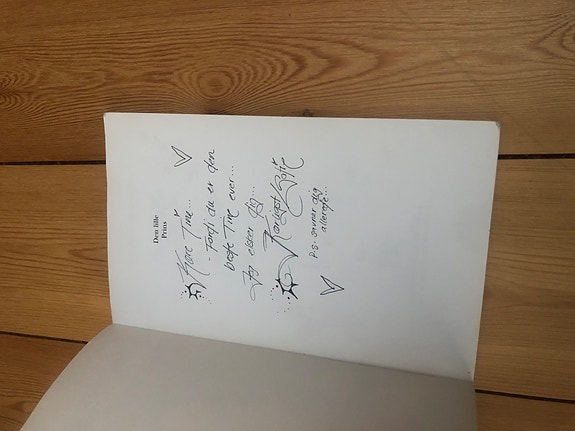 Den lille
Prins
Kære Tine...
- Fordi du er den
bedste Tine ever...
Jeg elsker dig...
P.S. savner dig
allerede...